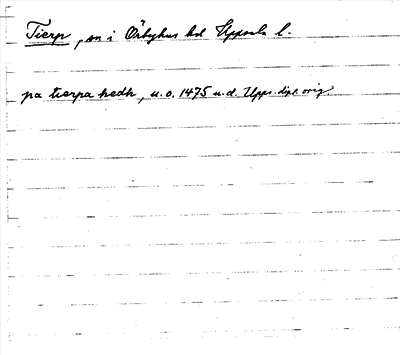 Tierp, sn i Örbyhus hd Uppsala l.
pa tierpa hedh, u.o. 1475 u.d. Upps. dipl. orig.